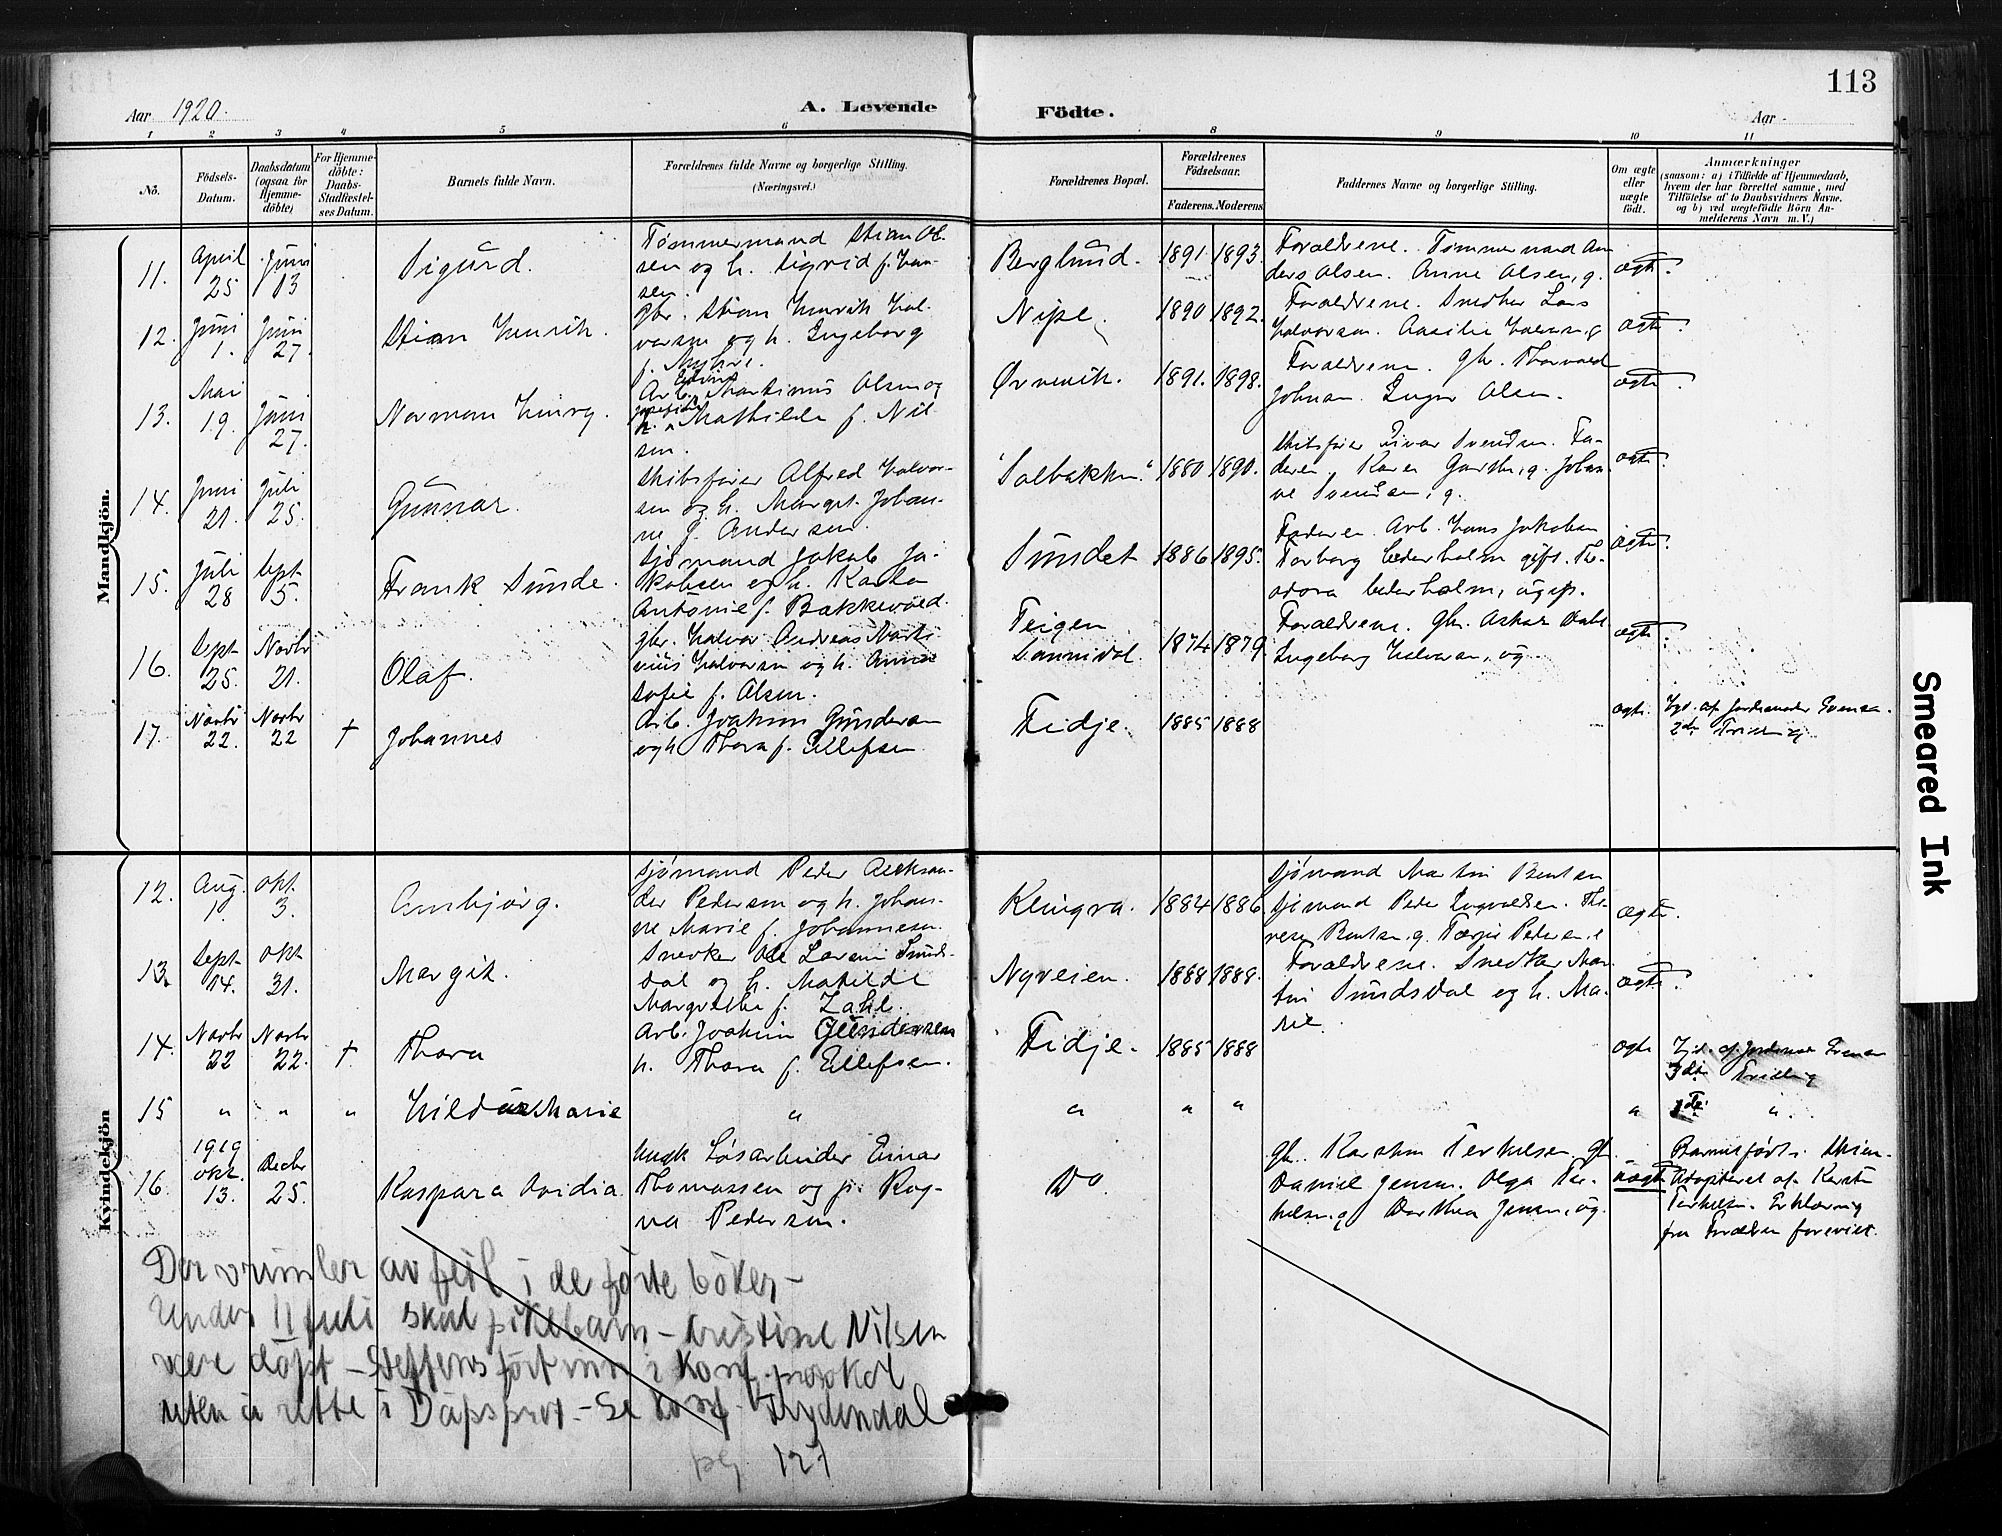 113
Aar 1920.
A. Levende
Födte.
Aar
1 2 3 4 5 6 8 9 10 11
No.
Födsels-
Datum.
Daabsdatum
(ogsaa for
Hjemme-
döbte)
For Hjemme-
döbte:
Daabs-
Stadfæstel-
ses Datum.
Barnets fulde Navn.
Forældrenes fulde Navne og borgerlige Stilling.
(Næringsvei.)
Forældrenes Bopæl.
Forældrenes
Födselsaar.
Faderens. Moderens.
Faddernes Navne og borgerlige Stilling.
Om ægte
eller
uægte
født.
Anmærkninger
(saasom: a) i Tilfælde af Hjemmedaab,
hvem der har forrettet samme, med
Tilföielse af to Daabsvidners Navne.
og b) ved uægtefödte Börn An-
melderens Navn m. V.)
Mandkjön.
11. April 25 Juni 13 Sigurd.
Tømmermand Stian Ol-
sen og h. Sigrid f. Han-
sen.
Berglund. 1891 1893.
Forældrene. Tømmermand An-
ders Olsen. Anne Olsen, g.
ægte.
12. Juni 1. Juni 27. Stian Henrik.
Gbr. Stian Henrik Hal-
vorsen og h. Ingeborg
f. Myhre.
Nipe 1890 1892.
Forældrene. Snedker Lars
Halvorsen.
ægte.
13. Mai 19. Juni 27. Norman Henry.
Arb. Martinius Olsen og
h. Mathilde f. Nil-
sen.
Ørnevik. 1891. 1898.
Forældrene. Gbr. Thorvald
Johnsen. Inger Olsen.
ægte.
14. Juni 21. Juli 25. Gunnar.
Skibsfører Alfred Halvor-
sen og h. Margit Johan-
ne f. Andersen.
"Solbakken" 1880 1890.
Skibsfører Einar Svendsen. Fa-
deren. Karen Garstn, g. Johan-
ne Svendsen, g.
ægte.
15. Juli 28 Sept 5. Frank Sunde.
Sjømand Jakob Ja-
kobsen og h. Karla
Antonie f. Bakkevold.
Sundet 1886 1895.
Faderen. Arb. Hans Jakobsen
Torborg Cederholm gift. Th-
odora Cederholm, ugift.
ægte.
16. Sept 25. Novbr 21. Olaf.
gbr. Halvor Andreas Marti-
nius Halvorsen og h. Anne
Sofie f. Olsen.
Teigen
Sannidal. 1874 1879
Forældrene. Gbr. Asker Dahl
Ingeborg Halvorsen, ug.
ægte.
17. Novbr 22. Novbr 22 † Johannes
Arb. Joakim Gundersen
og h Thora f. Ellefsen
Fidje. 1885 1888
ægte. Hjd. af Jordemoder Svensen.
2den Trilling
Kvindekjön
12. Aug. 1. Okt. 3. Ambjørg.
Sjømand Peder Aleksan-
der Pedersen og h. Johan-
ne Marie f. Johannesen.
Kleivgra. 1884 1886
Sjømand Martin Bentsen
Sjømand Peder Ingvaldsen. The-
rese Bentsen. g. Terjie Pedersen
ægte.
13. Sept 14. Okt 31. Margit.
Snedker Ole Lorenz Sunds-
dal og h. Matilde
Margrethe f. Zahl.
Nyveien. 1888 1888.
Forældrene. Snedker Mar-
tin Sundsdal og h. Ma-
rie.
ægte.
14. Novbr 22 Novbr 22. † Thora
Arb. Joakim Gundersen
h. Thora f. Ellefsen.
Fidje. 1885 1888
ægte Hjd. af Jordemoder Svensen
3die Trilling
15 " " " Hilda Marie " " " " " 1ste "
16. 1919 Okt. 13. Decbr 25. Kaspara Ovidia
Ungk Løsarbeider Einar
Thomassen og p. Rag-
na Pedersen.
Do
gbr. Karsten Terkelsen gbr.
Daniel Jensen. Olga Ter-
kelsen. g Dorthea Jensen, ug.
uægte
Barnet født i Skien.
Adopteret af Karsten
Terkelsen. Erklæring
fra Forældren forevist.
Der vrimler av feil i de førte bøker –
Under 11 juli skal pikebarn – Kristine Nilsen
være døpt – Steffens ført inn i konf. protokol
uten å rette i Dåpsprot. – Se konf. Frydendal
pg 127
Smeared Ink